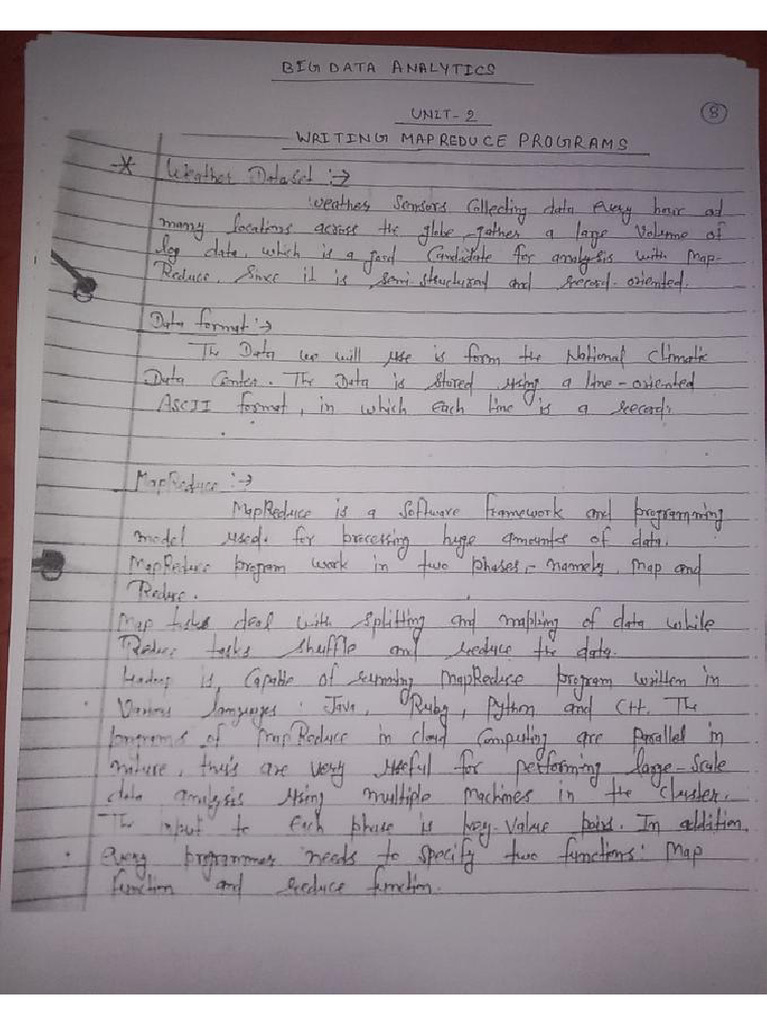 BIG DATA ANALYTICS
8
UNIT-2
WRITING MAPREDUCE PROGRAMS
* Weather Dataset :→
Weather Sensors Collecting data every hour at
many locations across the globe gather a large Volume of
log data, which is a good Candidate for analysis with Map-
Reduce, Since it is semi-structured and record-oriented.
Data format :→
The Data we will use is form the National Climatic
Data Center. The Data is stored using a line-oriented
ASCII format, in which Each line is a record.
MapReduce :→
MapReduce is a Software framework and programming
model used for processing huge amounts of data.
MapReduce program work in two phases,- namely, Map and
Reduce.
Map tasks deal with splitting and mapping of data while
Reduce tasks shuffle and reduce the data.
Hadoop is Capable of running MapReduce program written in
Various languages: Java, Ruby, Python and C++. The
programs of MapReduce in cloud Computing are Parallel in
nature, thus are very useful for performing large-Scale
data analysis using multiple Machines in the cluster.
The input to Each phase is key-value pairs. In addition,
every programmer needs to specify two functions: Map
function and reduce function.